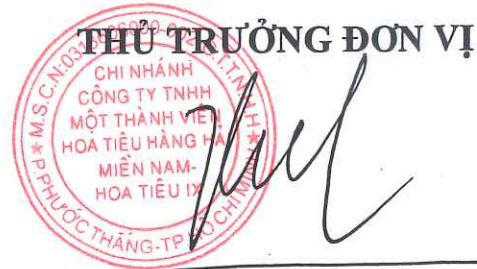 THỦ TRƯỞNG ĐƠN VỊ
CHI NHÁNH
CÔNG TY TNHH
MỘT THÀNH VIÊN
HOA TIÊU HÀNG HẢI
MIỀN NAM-
HOA TIÊU IX
P.PHƯỚC THẮNG-TP HỒ CHÍ MINH
M.S.C.N:
T.T.N.H.H